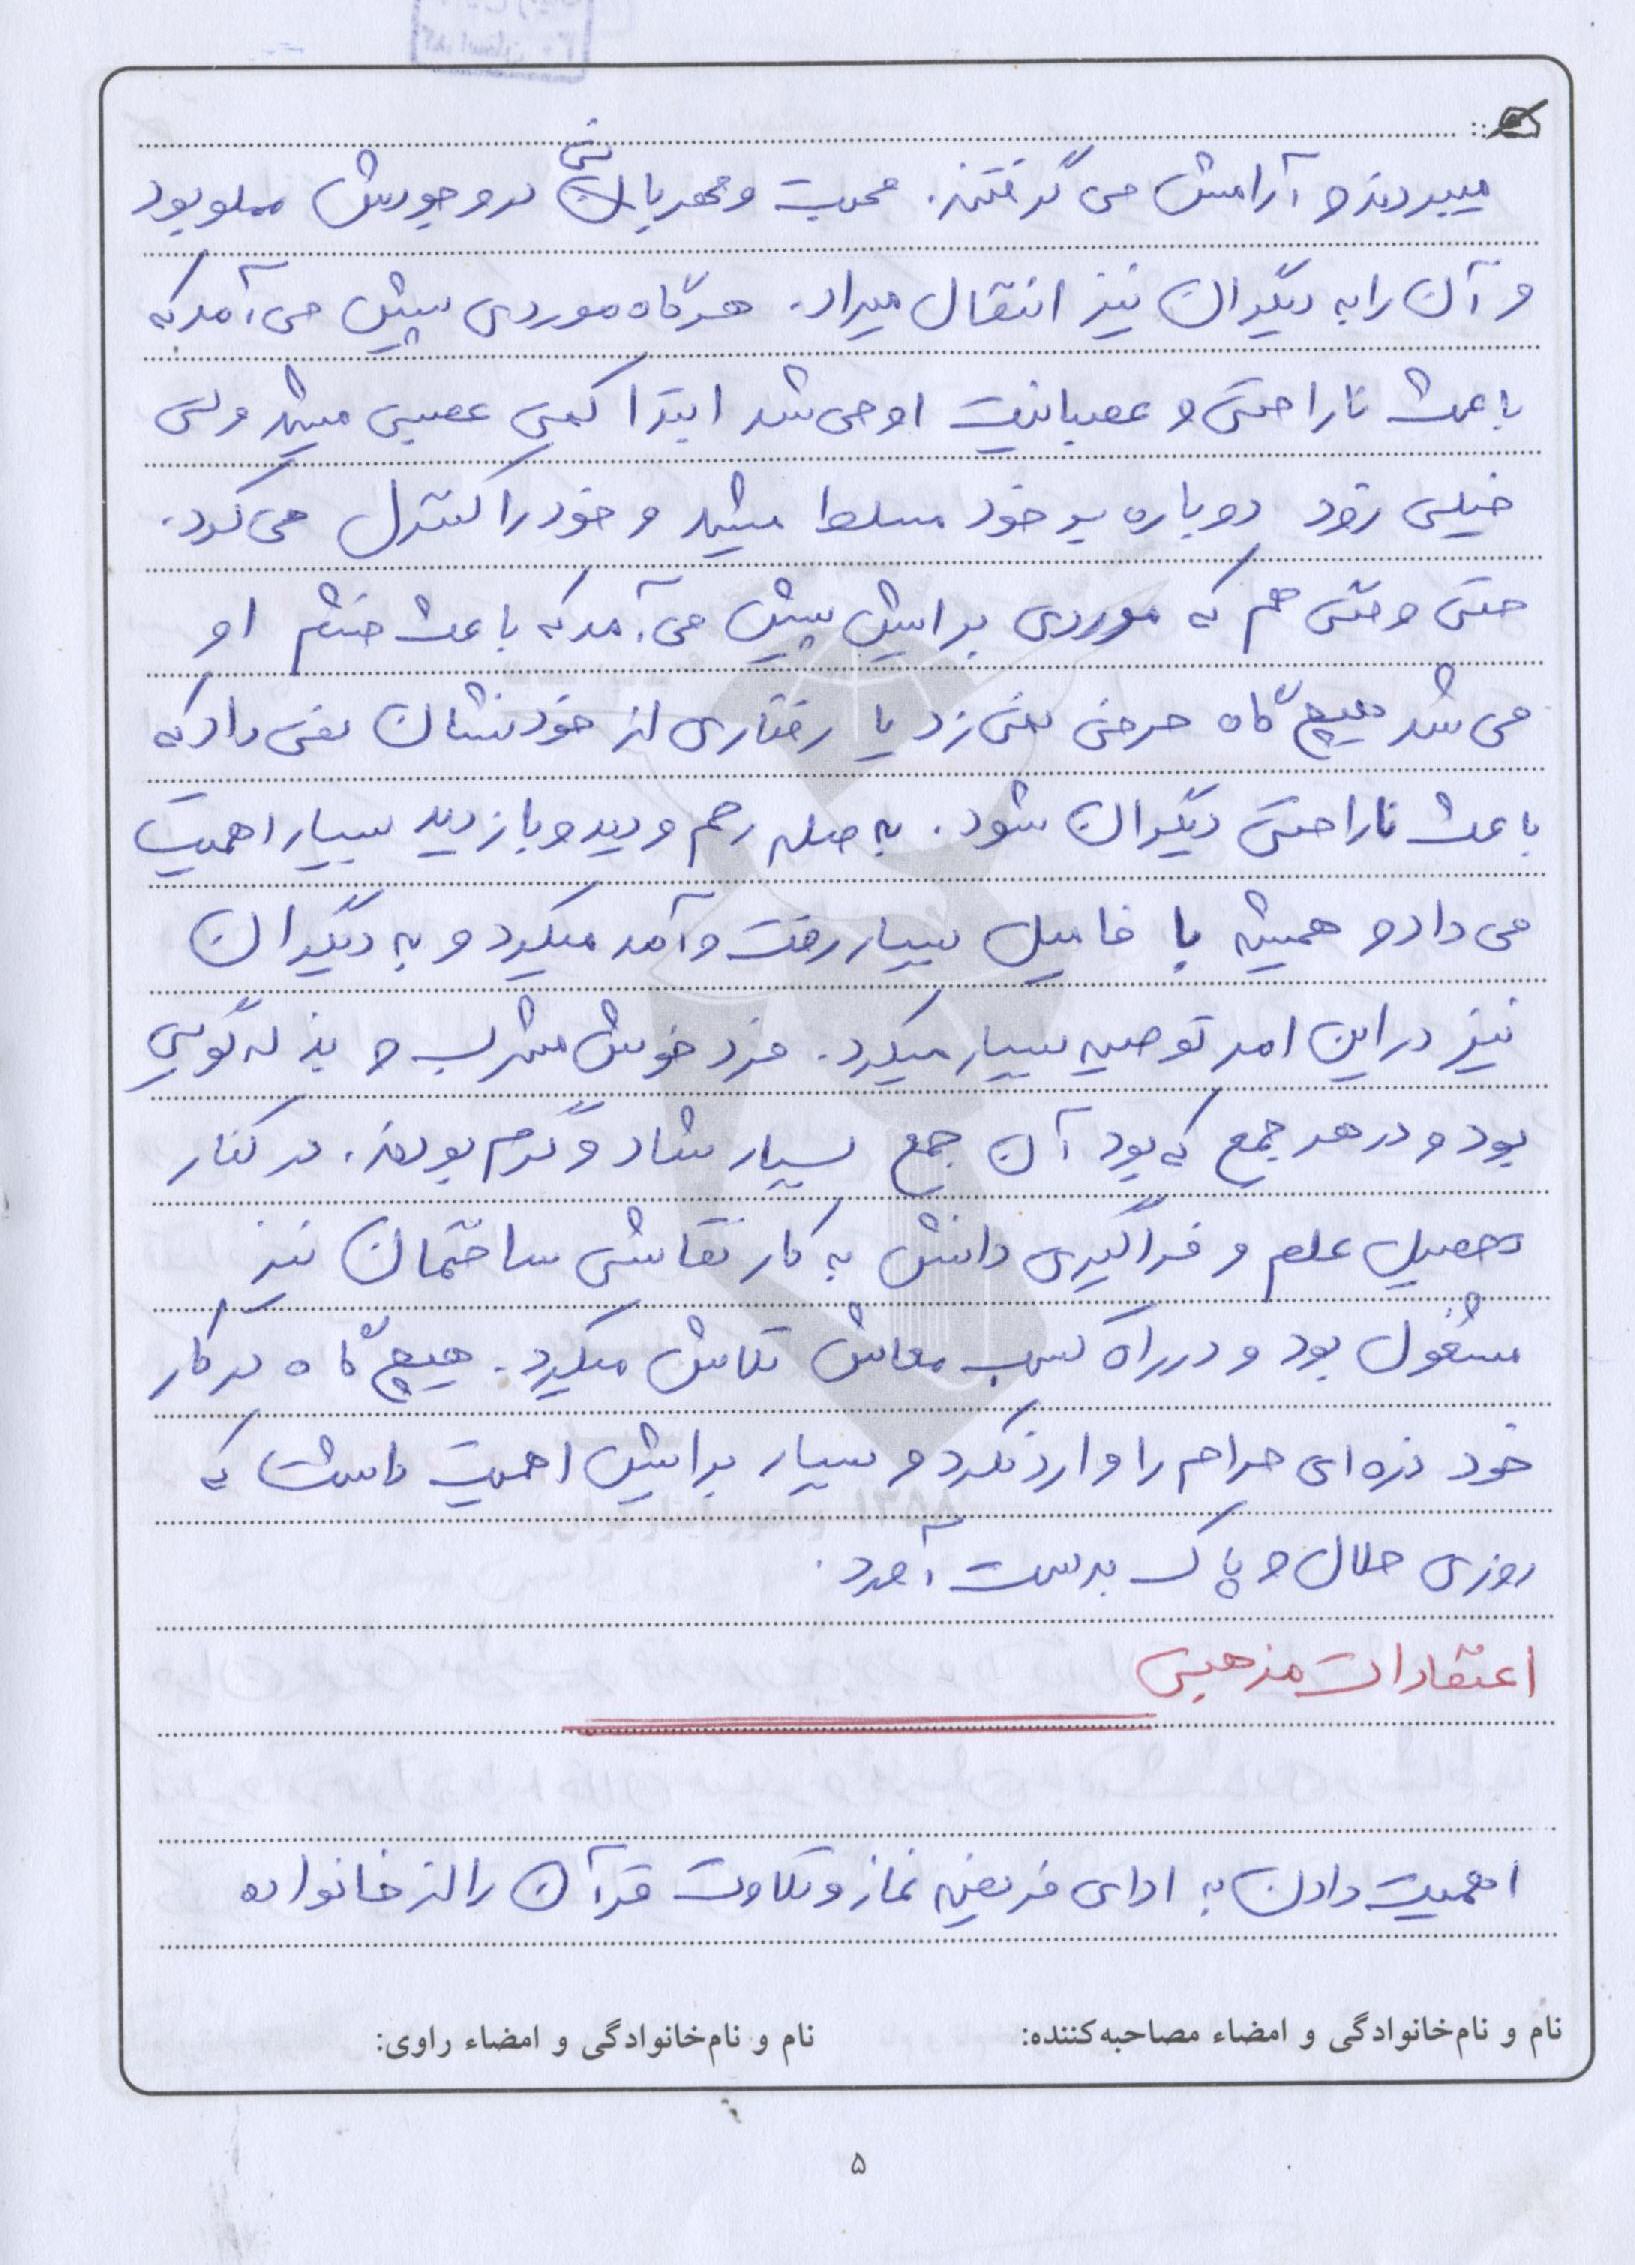 میبردند و آرامش می گرفتند. محبت و مهربانی در وجودش مملو بود
و آن را به دیگران نیز انتقال میداد. هرگاه موردی پیش می آمد که
باعث ناراحتی و عصبانیت او می شد ابتدا کمی عصبی میشد ولی
خیلی زود دوباره بر خود مسلط میشد و خود را کنترل می کرد.
حتی وقتی هم که موردی برایش پیش می آمد که باعث خشم او
می شد هیچ گاه حرفی نمی زد یا رفتاری از خود نشان نمی داد که
باعث ناراحتی دیگران شود. به صله رحم و دید و بازدید بسیار اهمیت
می داد و همیشه با فامیل بسیار رفت و آمد میکرد و به دیگران
نیز در این امر توصیه بسیار میکرد. فرد خوش مشرب و بذله گویی
بود و در هر جمع که بود آن جمع بسیار شاد و گرم بودند. در کنار
تحصیل علم و فراگیری دانش به کار نقاشی ساختمان نیز
مشغول بود و در راه کسب معاش تلاش میکرد. هیچ گاه در کار
خود ذره ای حرام را وارد نکرد و بسیار برایش اهمیت داشت که
روزی حلال و پاک بدست آورد.
اعتقادات مذهبی
اهمیت دادن به ادای فریضه نماز و تلاوت قرآن را از خانواده
نام و نام‌خانوادگی و امضاء مصاحبه‌کننده: نام و نام‌خانوادگی و امضاء راوی:
۵